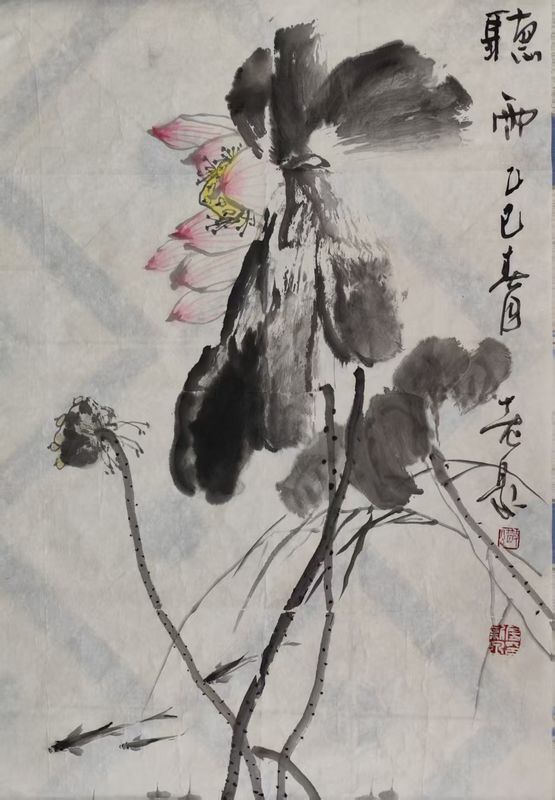 聽雨乙巳春月老泉